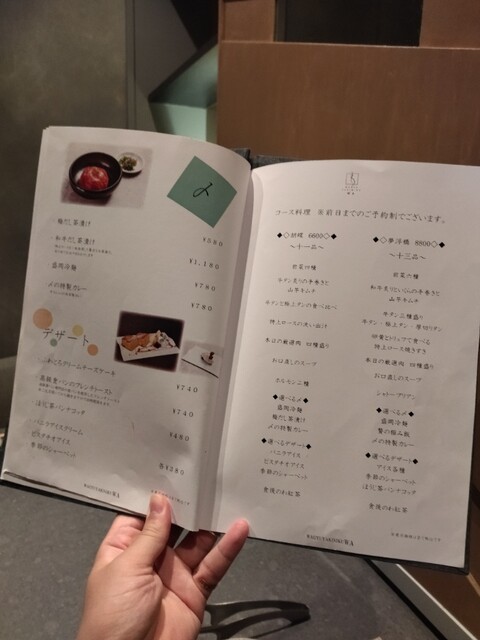 〆
梅だし茶漬け
¥580
・和牛だし茶漬け
¥1,180
・盛岡冷麺
¥780
〆の特製カレー
¥780
デザート
クリームチーズケーキ
¥740
黒豚食パンのフレンチトースト
¥740
ほうじ茶パンナコッタ
¥480
バニラアイスクリーム
ピスタチオアイス
季節のシャーベット
各¥380
コース料理 ※前日までのご予約制でございます。
◆◇胡蝶 6600◇◆
～十一品～
前菜六種
牛タン炙りの手巻きと
山芋キムチ
牛タンと極上タンの食べ比べ
特上ロースの洗い出汁
本日の厳選肉 四種盛り
お口直しのスープ
ホルモン二種
◆選べる〆◆
盛岡冷麺
梅だし茶漬け
〆の特製カレー
◆選べるデザート◆
バニラアイス
ピスタチオアイス
季節のシャーベット
食後のお紅茶
◆◇夢浮橋 8800◇◆
～十三品～
前菜六種
和牛炙りといくらの手巻きと
山芋キムチ
牛タン三種盛り
牛タン・極上タン・厚切りタン
特上ロース焼きすき
本日の厳選肉 四種盛り
お口直しのスープ
シャトーブリアン
◆選べる〆◆
盛岡冷麺
〆の特製カレー
◆選べるデザート◆
アイス各種
季節のシャーベット
ほうじ茶パンナコッタ
食後のお紅茶